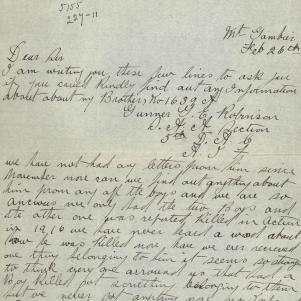 5155
227-11
Mt Gambier
Feb 26th
Dear Sir
I am writing you, these few lines to ask you
if you could kindly find out any Information
about about my Brother No 1639 A
Gunner T. E. Robinson
Section
5th
A I F
we have not had any letters from him since
November nore can we find out anything about
him from any off the boys and we are so
anxious we only had the two boys and
the other one was repated killed in Action
in 1916 we have never heard a word about
how he was killed nore have we ever received
one thing belonging to him it seems so strange
to think every one arround us that had a
Boy killed got something belonging to them
but we never got anything nore